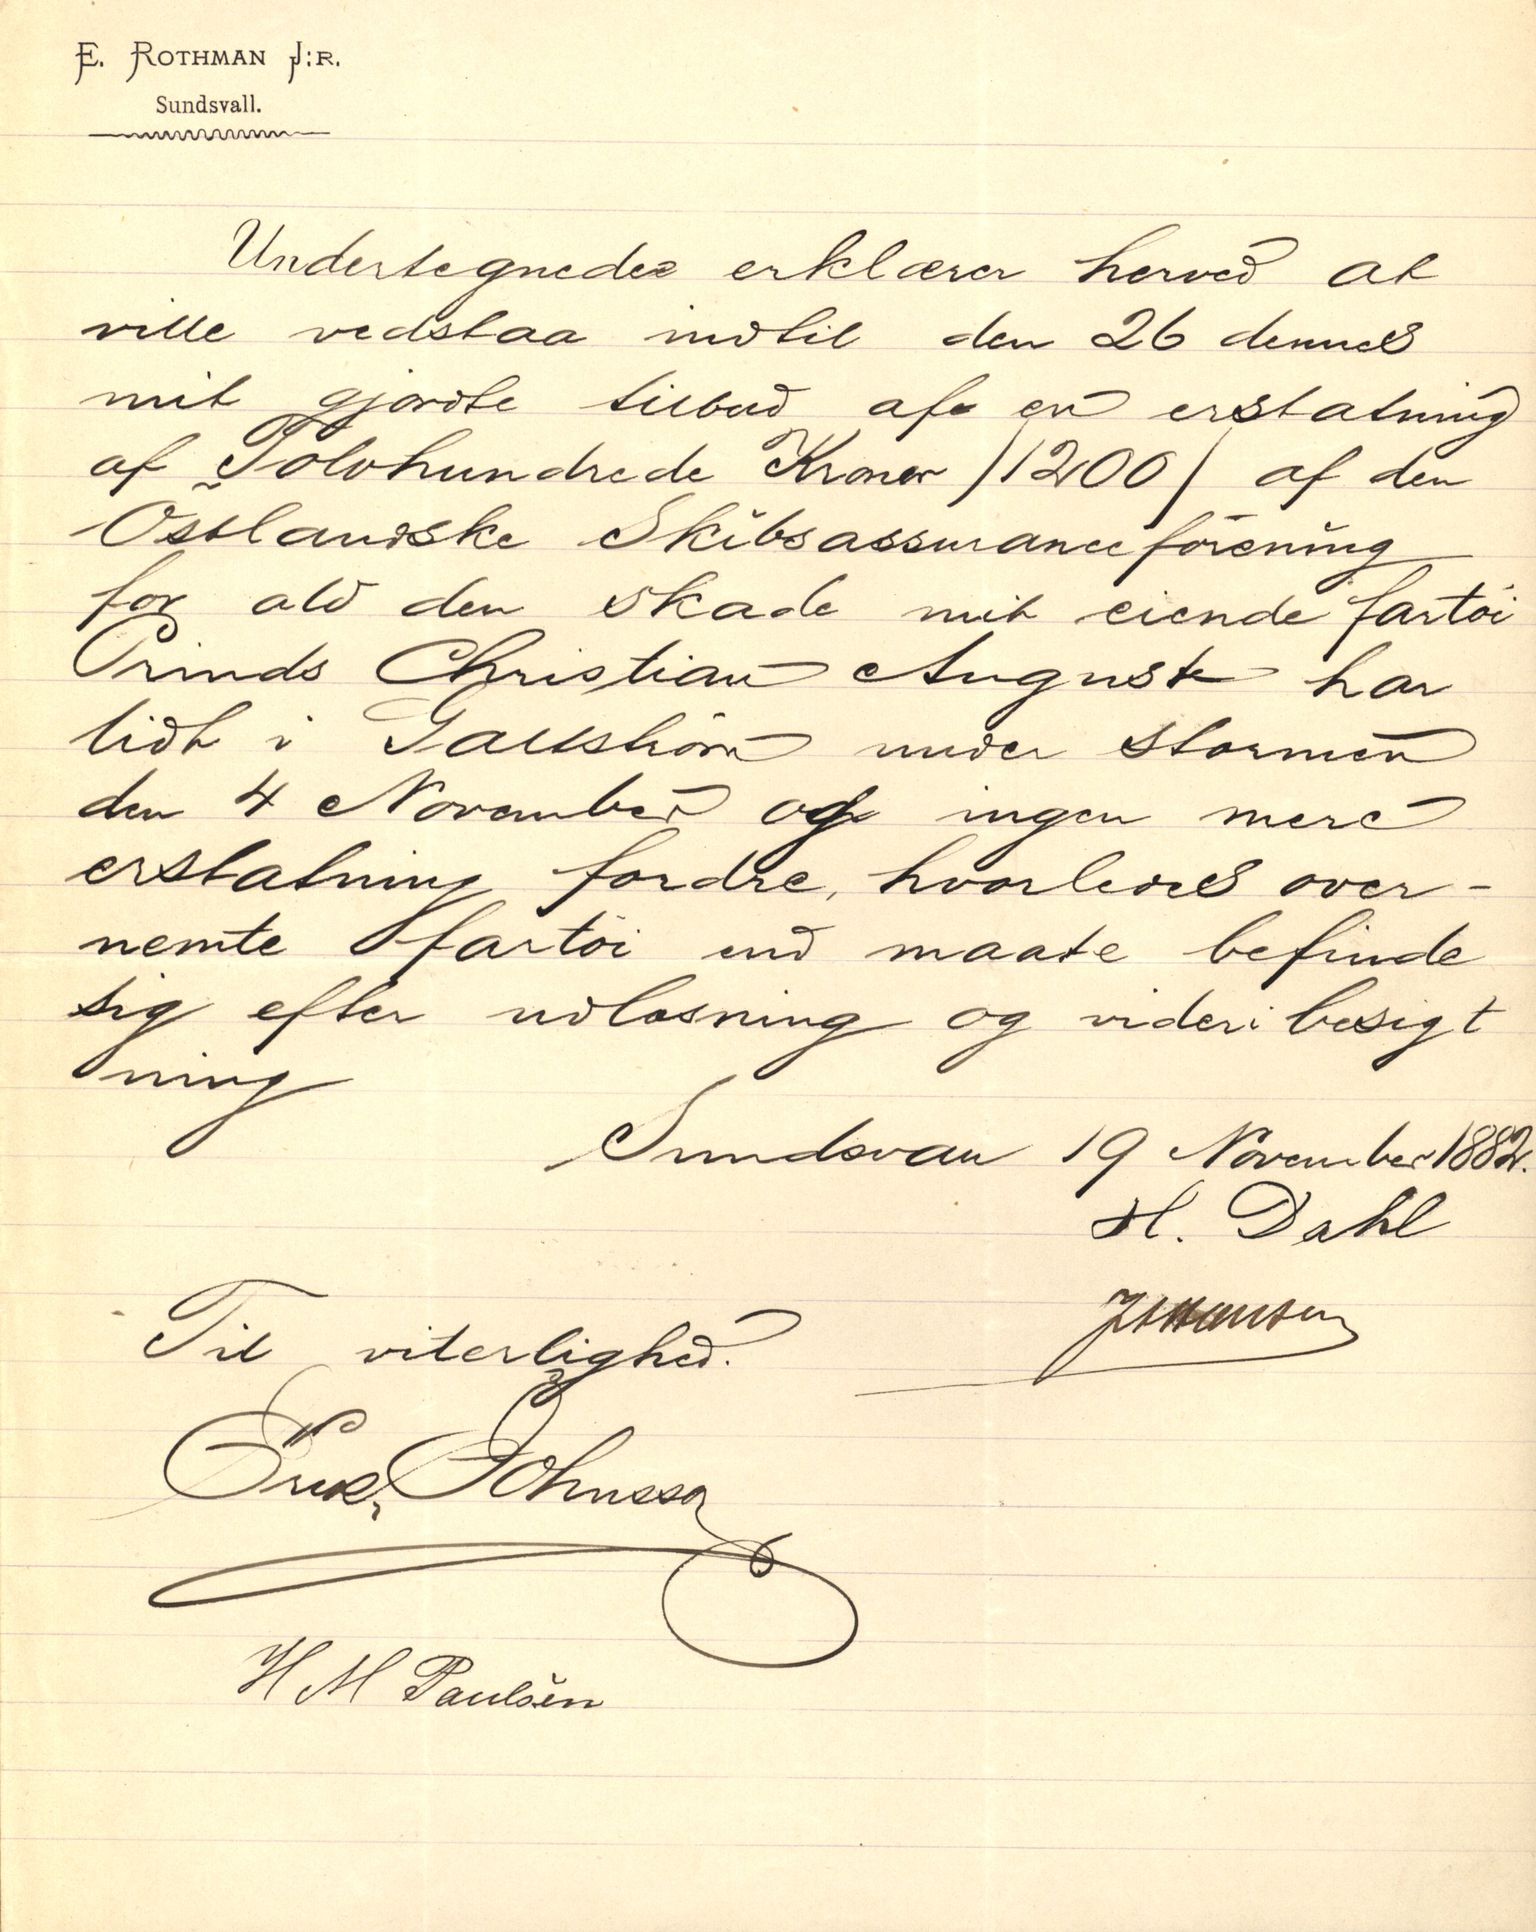 E. ROTHMAN J:R.
Sundsvall.
Undertegnede erklærer herved at
ville vedstaa indtil den 26 dennes
mit gjordte tilbud af en erstatning
af Tolvhundrede Kroner /1200/ af den
Östlandske Skibsassuranceförening
for ald den skade mit eiende fartöi
Prinds Christian August har
lidt i under stormen
den 4 November og ingen mere
erstatning fordre, hvorledes over-
nemte fartöi end maate befinde
sig efter udlosning og videri besigt
ning
Sundsvall 19 November 1882.
H. Dahl
Til viterlighed.
Erik Johnsson
H M Paulsen